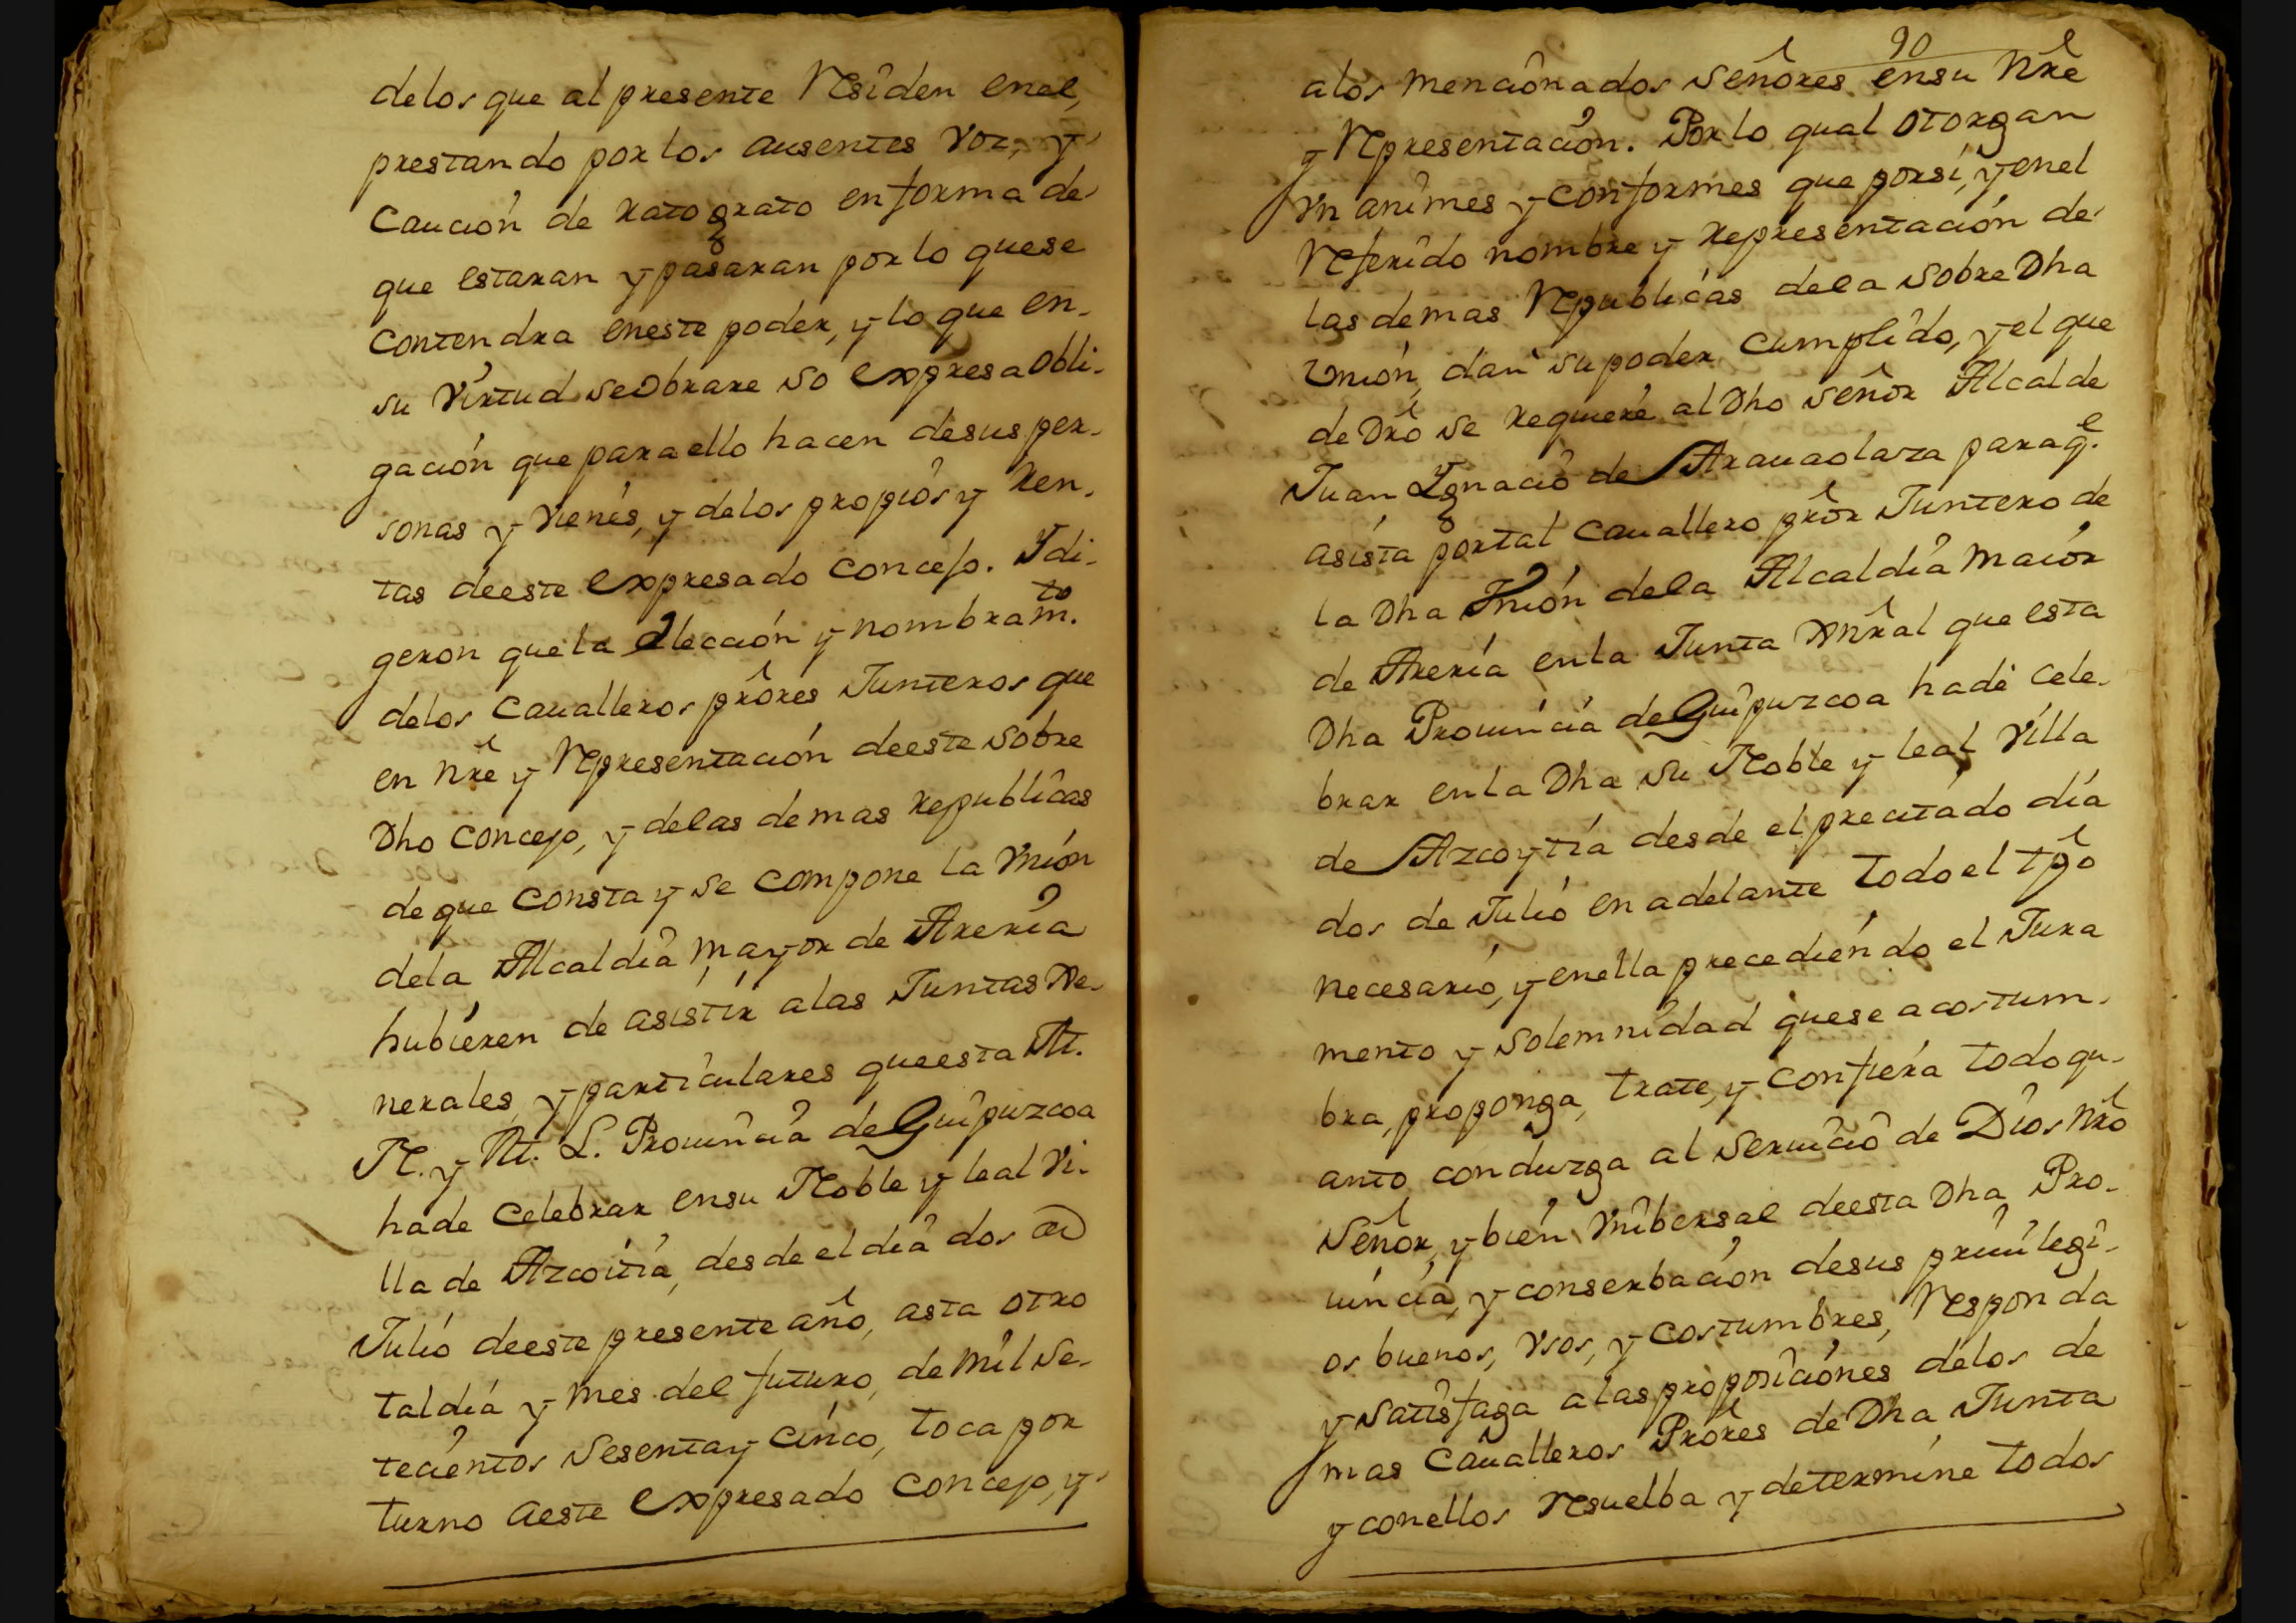 delos que al presente Residen enel,
prestando por los ausentes voz, y
Caución de rato grato en forma de
que estaran y pasaran por lo quese
Contendra eneste poder, y lo que en
su virtud se obrare so expresa obli-
gación que para ello hacen desus per-
sonas y vienes, y delos propios y Ren-
tas deeste expresado concejo. Y di-
geron que la eleccion y nombram.to
delos Cavalleros prôres Junteros que
en nrê y Representación deeste sobre
Dho Concejo, y delas demas Republicas
de que consta y se compone la Vnión
dela Alcaldia mayor de Areria
hubieren de asistir alas Juntas Ge-
nerales, y particulares queesta M.
N. y M. L. Provincia de Guipuzcoa
hade celebrar ensu Noble y leal Vi-
lla de Azcoitia, desde el dia dos de
Julio deeste presente año, asta otro
tal dia y mes del futuro, de mil se-
tecientos sesentay cinco, toca por
turno aeste expresado Concejo, y
90
alos mencionados señores ensu Nrê
y Representación. Por lo qual otorgan
Vn animes y conformes que porsi, y enel
Referido nombre y representación de
las demas Republicas dela sobre Dha
Vnión, dan su poder cumplido, y el que
de Drô se requiere al Dho señor Alcalde
Juan Ygnacio de Aravaolaza paraq.e
asista por tal Cavallero prôr Juntero de
la Dha Vnión dela Alcaldia maior
de Areria enla Junta Gnral que esta
Dha Provincia de Guipuzcoa hade cele-
brar enla Dha su Noble y leal Villa
de Azcoytia desde el precitado dia
dos de Julio en adelante todo el tpô
necesario, y enella precediendo el Jura
mento y solemnidad quese acostum-
bra, proponga, trate, y confiera todo qu-
anto conduzga al servicio de Dios Nrô
Señor, y bien Vnibersal deesta Dha Pro-
vincia, y conserbación desus privilegi-
os buenos, vsos, y costumbres, Responda
y satisfaga alas proposiciones delos de
mas Cavalleros Prôres de Dha Junta
y conellos Resuelba y determine todos